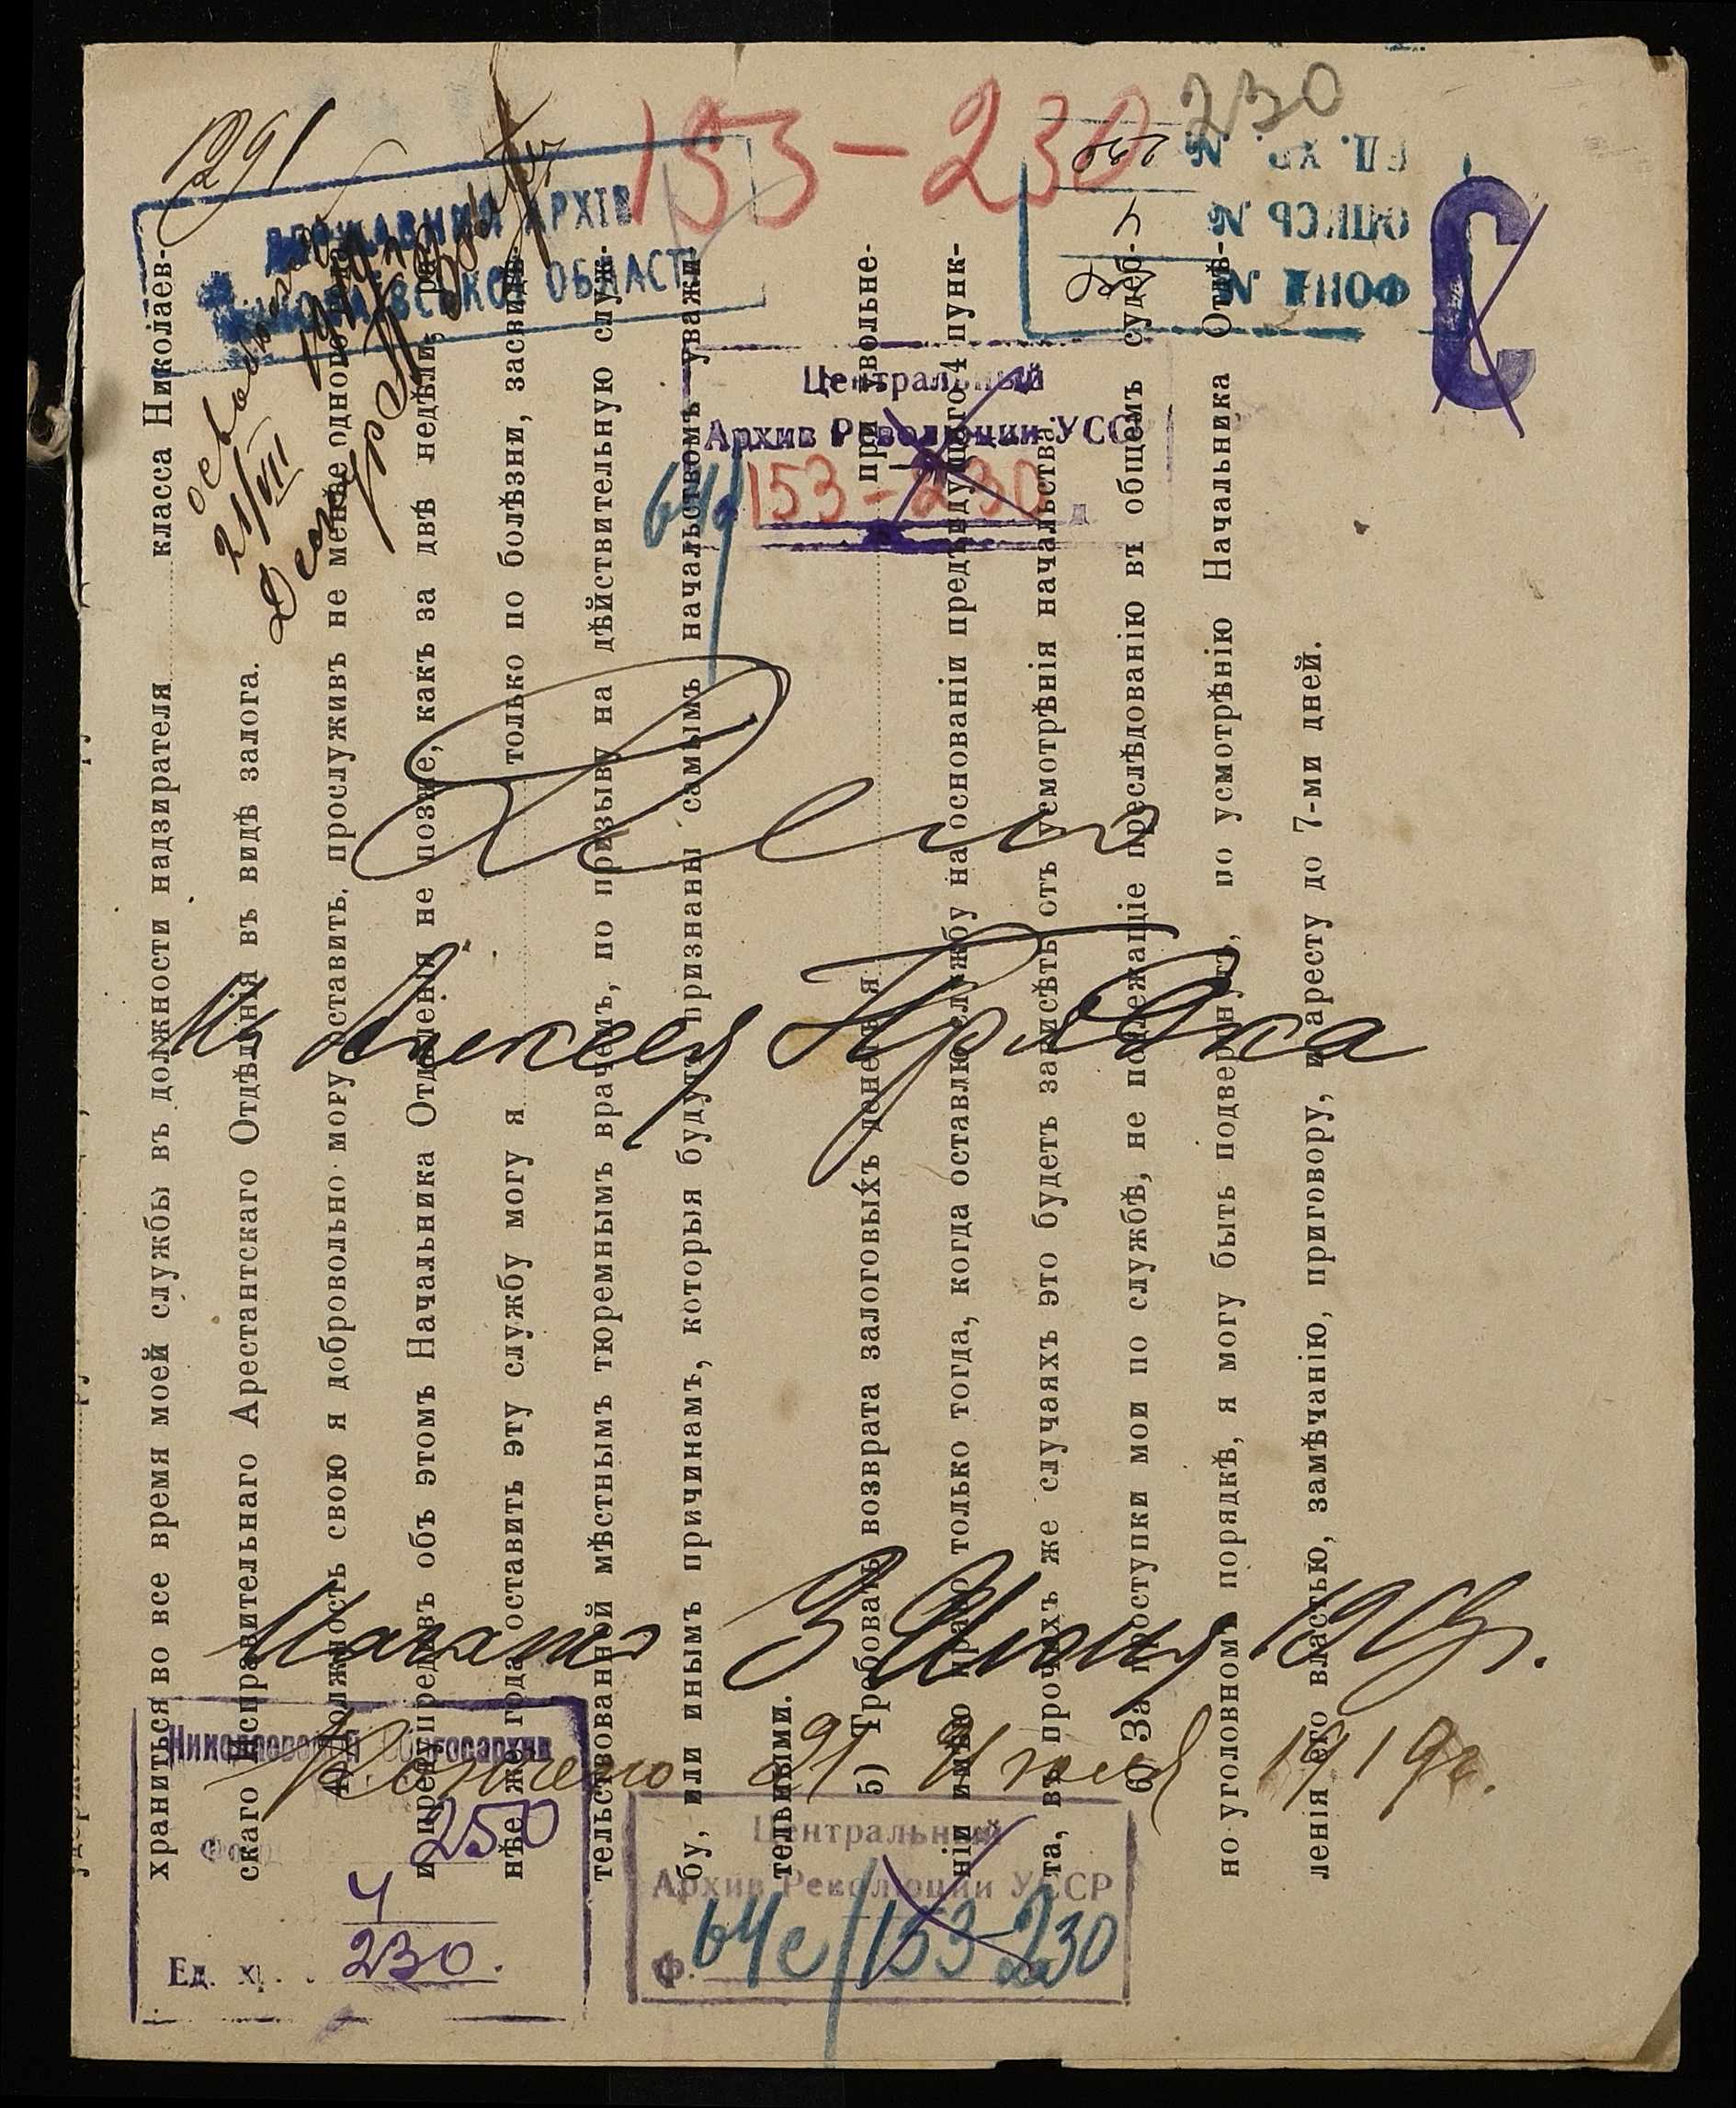 1291
153-230
230
ДЕРЖАВНИЙ АРХІВ
МИКОЛАЇВСЬКОЇ ОБЛАСТІ
ЕД. ХР. № 230
ОПИСЬ № 4
ФОНД №
С
21/VIII
Центральный
Архив Революции УССР
64с/153-230
Дело
Алексея
Начато 3 Июня 1919г.
Кончено 21 Июля 1919г.
Николаевский Облгосархив
Фонд 250
4
Ед. хр. 230.
Центральный
Архив Революции УССР
Ф. 64с/153-230
храниться во все время моей службы въ должности надзирателя класса Николаев-
скаго Исправительнаго Арестантскаго Отдѣленія въ видѣ залога.
4) Должность свою я добровольно могу оставить, прослуживъ не менѣе одного года
и предупредивъ объ этомъ Начальника Отдѣленія не позже, какъ за двѣ недѣли; ра-
нѣе же года оставить эту службу могу я только по болѣзни, засвидѣ-
тельствованной мѣстнымъ тюремнымъ врачемъ, по призыву на дѣйствительную служ-
бу, или инымъ причинамъ, которыя будутъ признаны самымъ начальствомъ уважи-
тельными.
5) Требовать возврата залоговыхъ денегъ я при увольне-
ніи имѣю право только тогда, когда оставлю службу на основаніи предъидущаго 4 пунк-
та, въ прочихъ же случаяхъ это будетъ зависѣть отъ усмотрѣнія начальства.
6) За проступки мои по службѣ, не подлежащіе преслѣдованію въ общемъ судеб-
но-уголовномъ порядкѣ, я могу быть подвергнутъ, по усмотрѣнію Начальника Отдѣ-
ленія его властью, замѣчанію, приговору, и аресту до 7-ми дней.